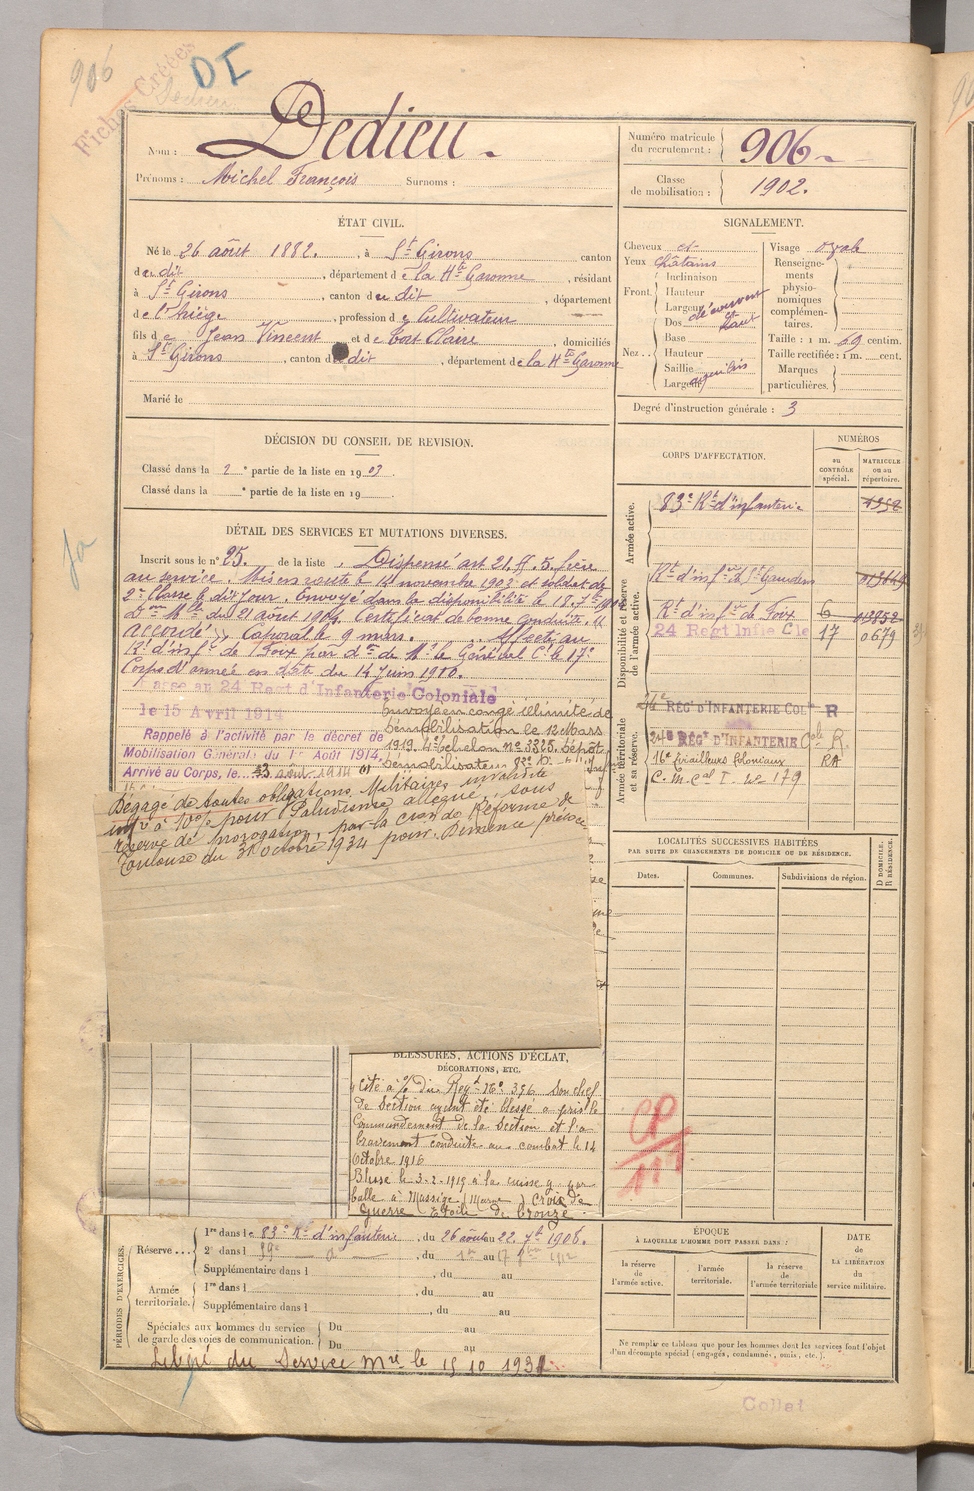 906
DI
Fiches Créées
Nom : Dedieu
Prénoms : Michel François Surnoms :
Numéro matricule du recrutement : 906
Classe de mobilisation : 1902.
ÉTAT CIVIL.
Né le 26 août 1882, à St Girons canton
du dit, département de la Hte Garonne, résidant
à St Girons, canton du dit, département
de l'Ariège, profession de Cultivateur
fils de Jean Vincent et de Tort Claire, domiciliés
à St Girons, canton du dit, département de la Hte Garonne
Marié le
SIGNALEMENT.
Cheveux et
Yeux châtains
Inclinaison
Front. Hauteur
Largeur découvert
Dos haut
Base
Nez.. Hauteur
Saillie
Largeur
Visage ovale
Renseignements physionomiques complémentaires.
Taille : 1 m. 69 centim.
Taille rectifiée : 1 m. cent.
Marques particulières.
Degré d'instruction générale : 3
DÉCISION DU CONSEIL DE REVISION.
Classé dans la 2e partie de la liste en 1903.
Classé dans la e partie de la liste en 19
CORPS D'AFFECTATION.
NUMÉROS
au CONTRÔLE spécial.
MATRICULE ou au répertoire.
Armée active.
83e Rt d'infanterie 1352
Disponibilité et réserve de l'armée active.
Rt d'infie de St Gaudens
Rt d'infie de Foix 6
24 Regt Infie Cle 17 0679
Armée territoriale et sa réserve.
24e RÉGt D'INFANTERIE COLe R
24e RÉGt D'INFANTERIE Cole R.
16e Tirailleurs Coloniaux RA
C. M. Cal I. no 179
DÉTAIL DES SERVICES ET MUTATIONS DIVERSES.
Inscrit sous le n° 25. de la liste. Dispensé art 21. ff. 5. frère
au service. Mis en route le 14 novembre 1903 et soldat de
2e classe le dit jour. Envoyé dans la disponibilité le 18. 7bre 1904
Don Mlle du 21 août 1904. Certificat de bonne conduite "
accordé". Caporal le 9 mars. Affecté au
Rt d'infie de Foix par don de Mr le Général Ct le 17e
Corps d'armée en date du 14 Juin 1912.
Passé au 24 Regt d'Infanterie Coloniale
le 15 Avril 1914
Rappelé à l'activité par le décret de
Mobilisation Générale du 1er Août 1914.
Arrivé au Corps, le 3 août 1914
Envoyé en congé illimité de
Démobilisation le 12 Mars
1919. 4e Echelon no 3325. Dépôt
Démobilisateur
Dégagé de toutes obligations Militaires, invalidité
infre à 10% pour Paludisme allégué, sous
réserve de prorogation, par la cion de Réforme de
Toulouse du 31 octobre 1934 pour. Démence précoce
LOCALITÉS SUCCESSIVES HABITÉES
PAR SUITE DE CHANGEMENTS DE DOMICILE OU DE RÉSIDENCE.
Dates. Communes. Subdivisions de région. D DOMICILE. R RÉSIDENCE.
BLESSURES, ACTIONS D'ÉCLAT,
DÉCORATIONS, ETC.
Cité à l'o/ du Regt No 396 Son chef
de Section ayant été blessé a pris le
Commandement de la section et l'a
bravement conduite au combat le 14
Octobre 1916
Blessé le 3-2-1915 à la cuisse g par
balle à Massige (Marne) Croix de
Guerre Etoile de bronze
CP
117
PÉRIODES D'EXERCICES.
Réserve... 1re dans le 83e Rt d'infanterie, du 26 août au 22. 7bre 1906.
2e dans l 59e, du 1er au 17 1912
Supplémentaire dans l, du au
Armée territoriale. 1re dans l, du au
Supplémentaire dans l, du au
Spéciales aux hommes du service de garde des voies de communication. Du au
Du au
Libéré du Service Mre le 15 10 1931
ÉPOQUE
À LAQUELLE L'HOMME DOIT PASSER DANS :
la réserve de l'armée active. l'armée territoriale. la réserve de l'armée territoriale
DATE DE LA LIBÉRATION du service militaire.
Ne remplir ce tableau que pour les hommes dont les services font l'objet
d'un décompte spécial (engagés, condamnés, omis, etc.).
Collat